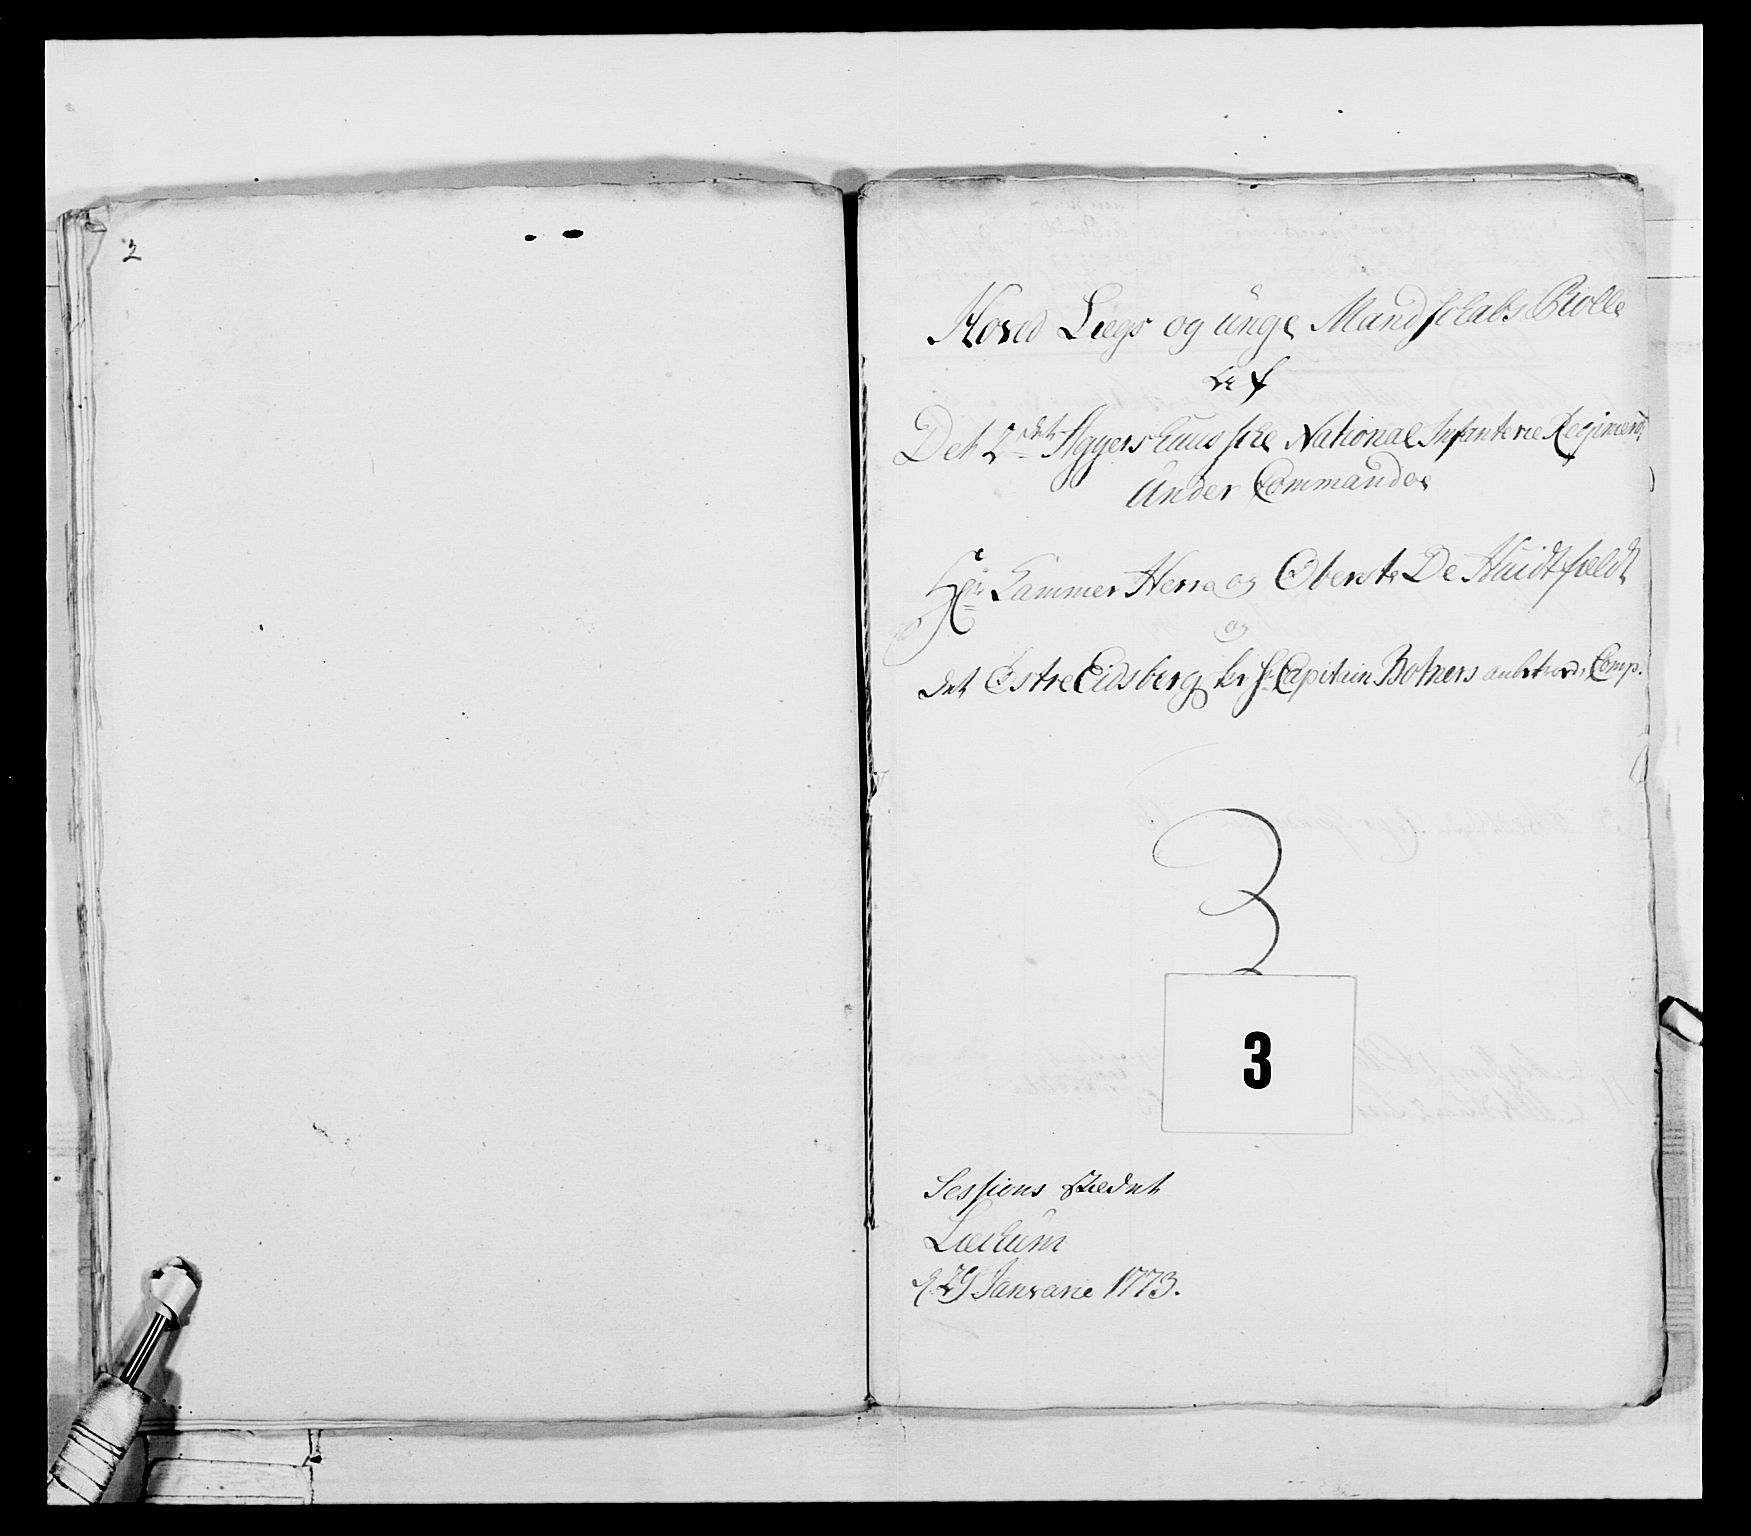 2
Hoved Lægs og unge Mandskabs Rolle
af
Det 2det Aggershuusske National Infanterie Regiment
Under Commando
Hr: Kammer Herre og Oberste De Huidtfeldt
og
det Østre Eidsbergske Hr Capitain Bothers anbetroede Comp.
3
3
Sessions stædet
Lækum
d. 29 Januarie 1773.